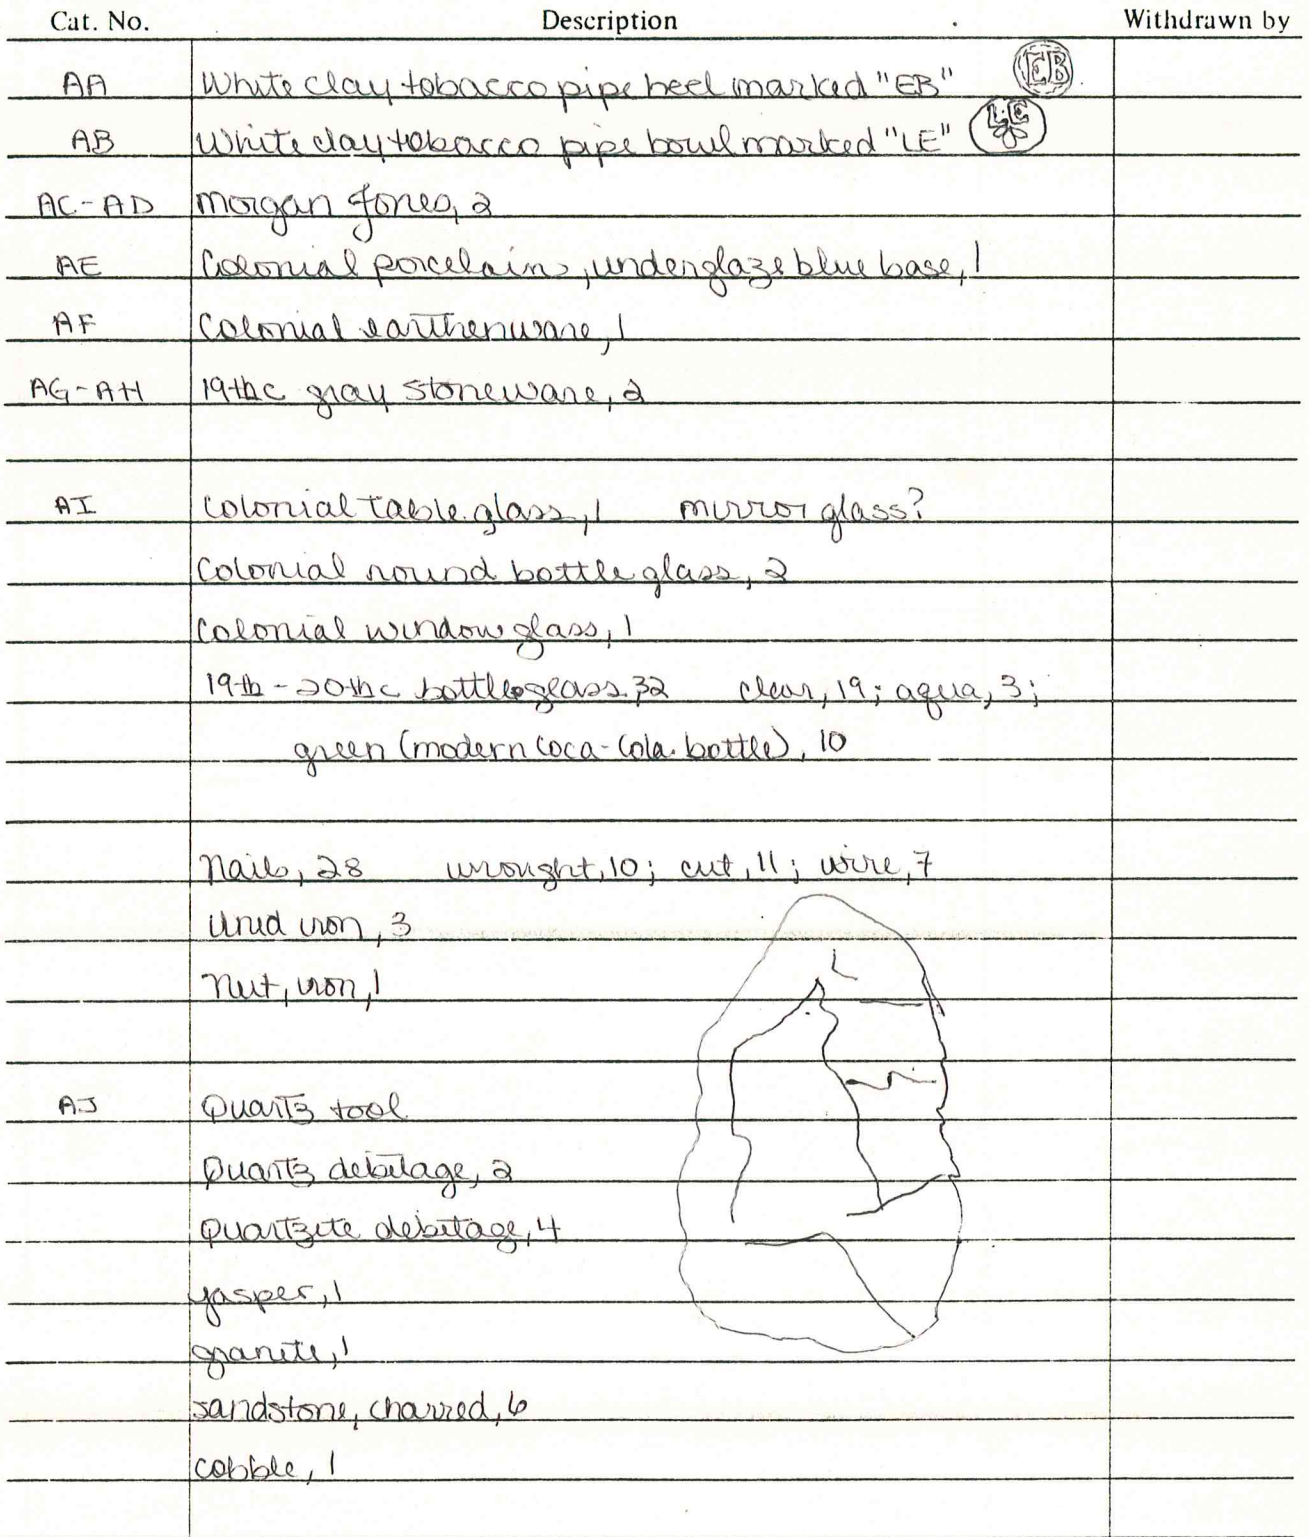 Cat. No. Description Withdrawn by
AA White clay tobacco pipe heel marked "EB" EB
AB White clay tobacco pipe bowl marked "LE" LE
AC-AD Morgan Jones, 2
AE Colonial porcelain, underglaze blue base, 1
AF Colonial earthenware, 1
AG-AH 19thc gray stoneware, 2
AI Colonial table glass, 1 mirror glass?
Colonial round bottle glass, 2
Colonial window glass, 1
19th-20thc bottle glass, 32 clear, 19; aqua, 3;
green (modern Coca-Cola bottle), 10
Nails, 28 wrought, 10; cut, 11; wire, 7
Unid iron, 3
Nut, iron, 1
AJ Quartz tool
Quartz debitage, 2
Quartzite debitage, 4
yasper, 1
granite, 1
sandstone, charred, 6
cobble, 1